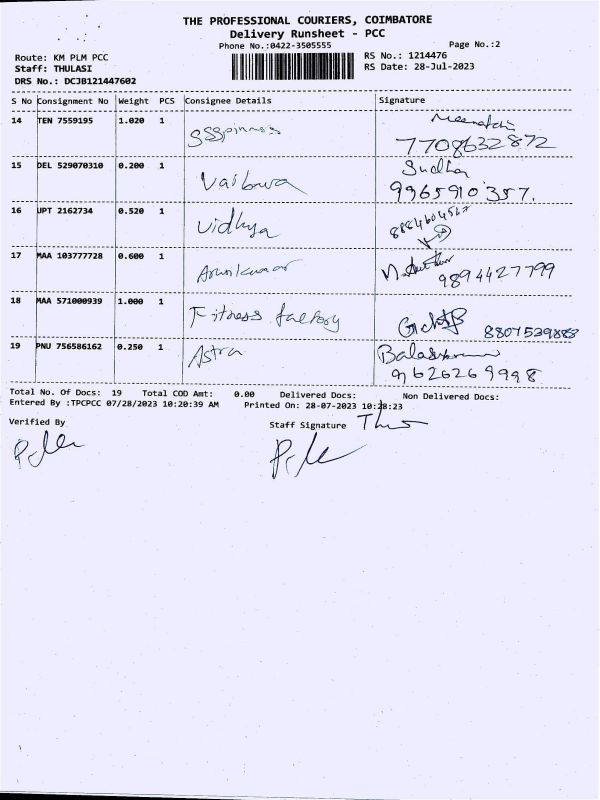 THE PROFESSIONAL COURIERS, COIMBATORE
Delivery Runsheet - PCC
Phone No.:0422-3505555 Page No.:2
Route: KM PLM PCC RS No.: 1214476
Staff: THULASI RS Date: 28-Jul-2023
DRS No.: DCJB121447602
S No Consignment No Weight PCS Consignee Details Signature
14 TEN 7559195 1.020 1 SSSpinners Meenatchi
7708632872
15 DEL 529070310 0.200 1 Sudha
9965910357.
16 UPT 2162734 0.520 1 Vidhya 8884604567
17 MAA 103777728 0.600 1 Arunkumar
9894427799
18 MAA 571000939 1.000 1 Fitness factory
8807539883
19 PNU 756586162 0.250 1 Astra
9626269998
Total No. Of Docs: 19 Total COD Amt: 0.00 Delivered Docs: Non Delivered Docs:
Entered By :TPCPCC 07/28/2023 10:20:39 AM Printed On: 28-07-2023 10:28:23
Verified By Staff Signature